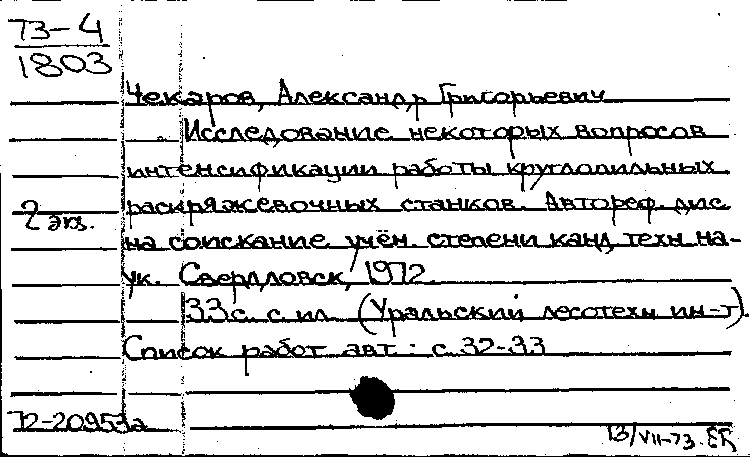 73-4
1803
Чекаров, Александр Григорьевич
Исследование некоторых вопросов
интенсификации работы круглопильных
2 экз. раскряжевочных станков. Автореф. дис
на соискание учён. степени канд. техн. на-
ук. Свердловск, 1972.
33 с. с ил. (Уральский лесотехн ин-т).
Список работ авт.: с. 32-33
72-20953а
13/VII-73.